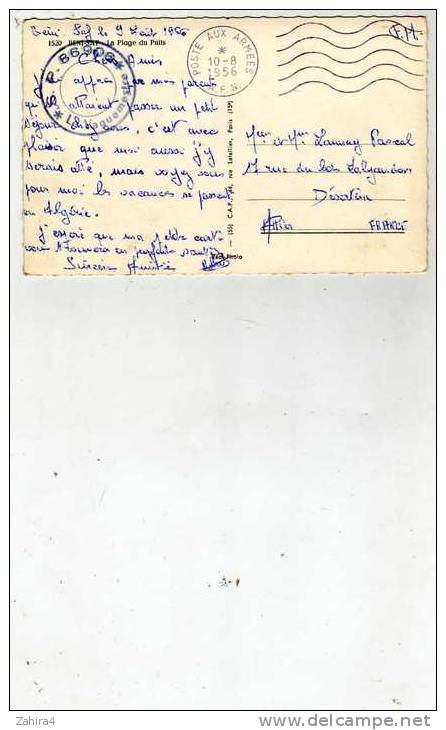 Beni-Saf le 9 Août 1956
1520 BENI-SAF La Plage du Puits
Chers Amis
J'ai appris par mes parents
qu'ils étaient passer un petit
séjour chez vous, c'est avec
plaisir que moi aussi j'y
serais allé, mais voyez vous
pour moi les vacances se passent
en Algérie.
J'espère que ma petite carte
vous trouvera en parfaite santé
Sincère Amitié
POSTE AUX ARMEES
10-8
1956
A.F.N.
86908
(55) C.A.P., 44, rue Letellier, Paris (15e)
Photo
F.M.
Mr et Mme Launay Pascal
17 rue du bois
Désertin
Allier FRANCE
Zahira4
www.delcampe.net